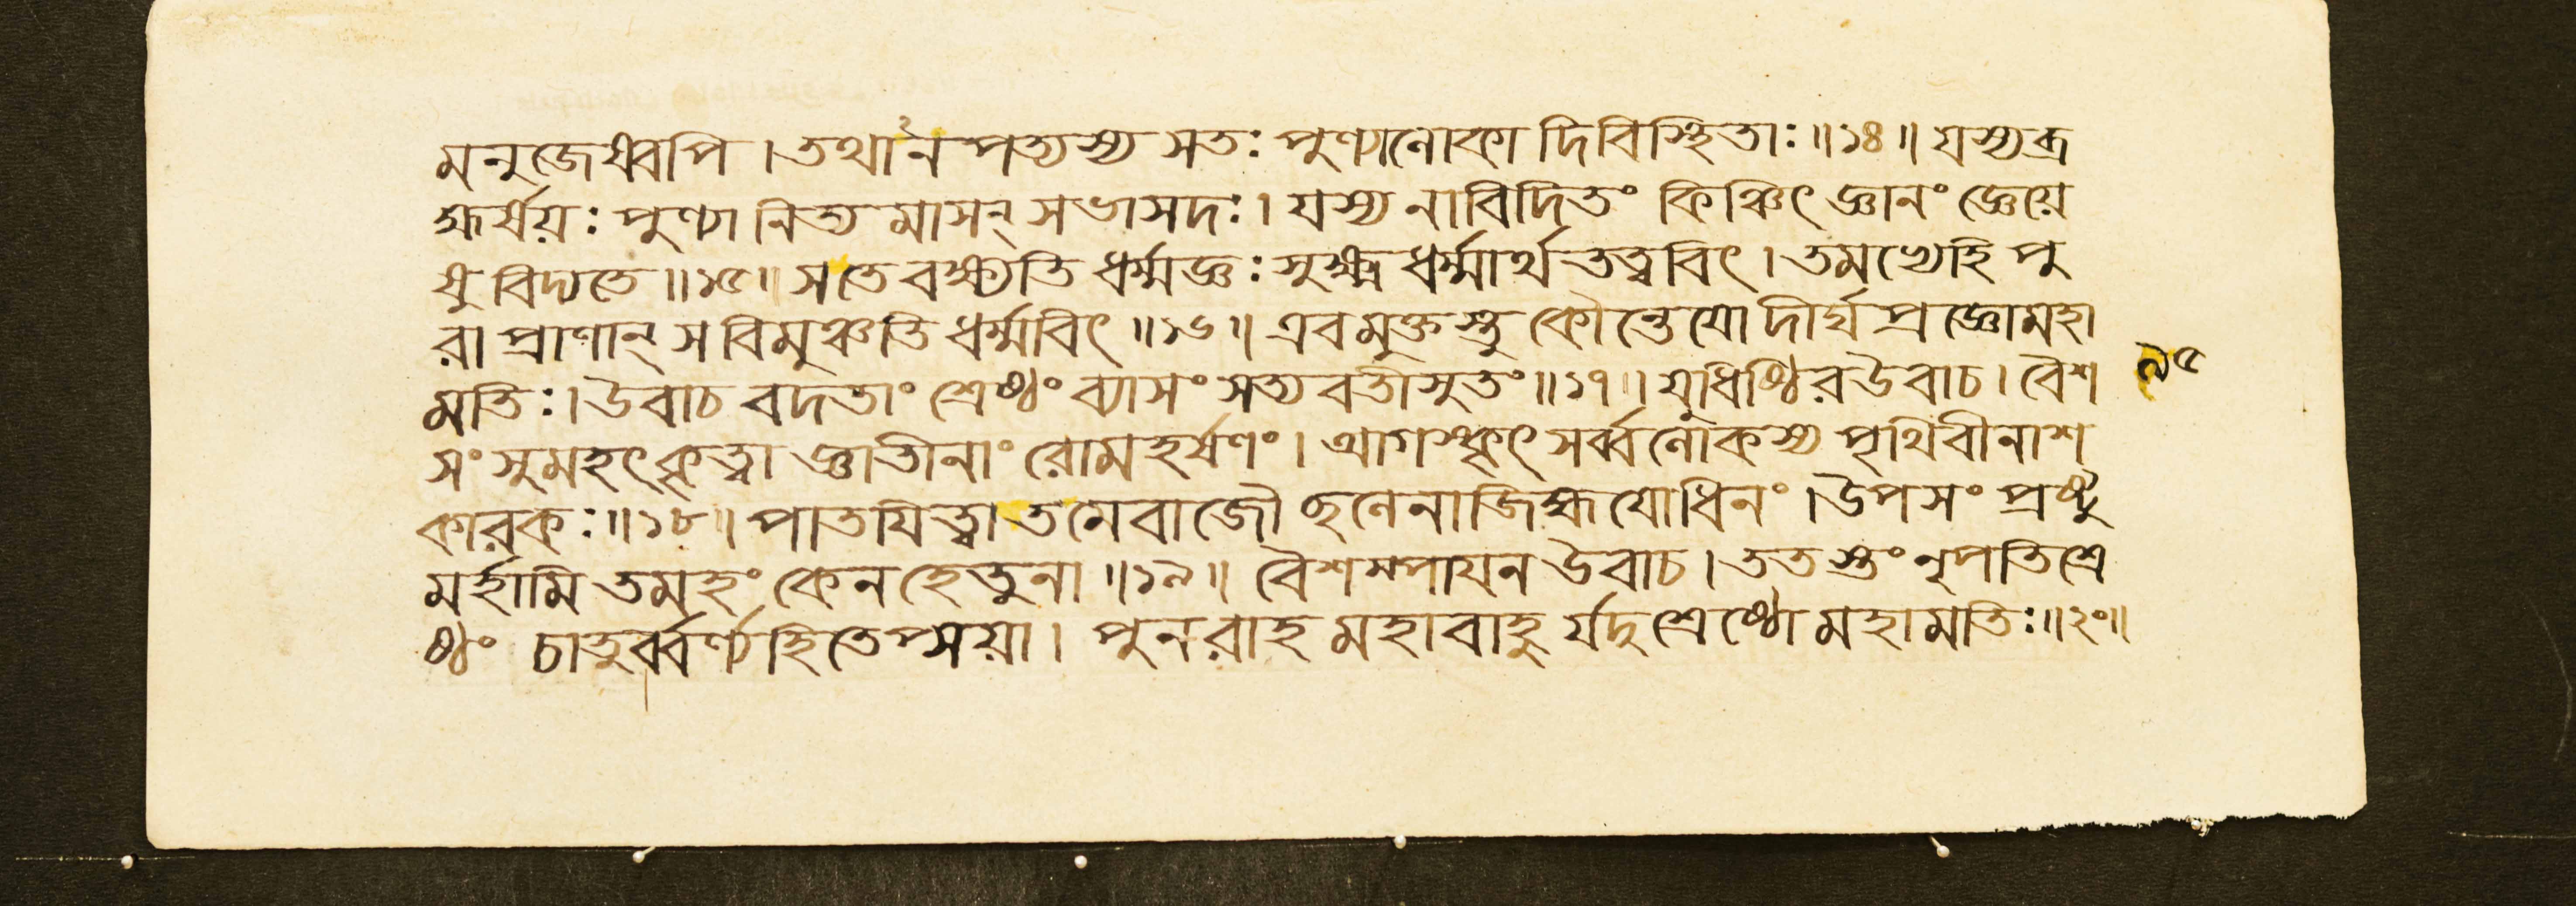 মনুজেষ্বপি । তথানপত্যস্য সতঃ পুণ্যালোকা দিবিস্থিতাঃ ॥ ১৪ ॥ যস্য ব্র
হ্মর্ষয়ঃ পুণ্যা নিত্যমাসন্ সভাসদঃ । যস্য নাবিদিতং কিঞ্চিৎ জ্ঞানং জ্ঞেয়ে
ষু বিদ্যতে ॥ ১৫ ॥ স তে বক্ষ্যতি ধর্ম্মজ্ঞঃ সুক্ষ্ম ধর্ম্মার্থতত্ত্ববিৎ । তমভ্যেহি পু
রা প্রাণান্ স বিমুঞ্চতি ধর্ম্মবিৎ ॥ ১৬ ॥ এবমুক্তস্তু কৌন্তেয়ো দীর্ঘপ্রজ্ঞো মহা
মতিঃ । উবাচ বদতাং শ্রেষ্ঠং ব্যাসং সত্যবতীসুতং ॥ ১৭ ॥ যুধিষ্ঠির উবাচ । বৈশ
সং সুমহৎ কৃত্বা জ্ঞাতীনাং রোমহর্ষণং । আগস্কৃৎ সর্ব্বলোকস্য পৃথিবীনাশ
কারকঃ ॥ ১৮ ॥ পাতয়িত্বা তমেবাজৌ ছলেনাজিহ্মযোধিনং । উপসংপ্রষ্টু
মর্হামি তমহং কেন হেতুনা ॥ ১৯ ॥ বৈশম্পায়ন উবাচ । ততস্তং নৃপতিশ্রে
ষ্ঠং চাতুর্ব্বর্ণ্যহিতেপ্সয়া । পুনরাহ মহাবাহুর্যদুশ্রেষ্ঠো মহামতিঃ ॥ ২০ ॥
৯৫